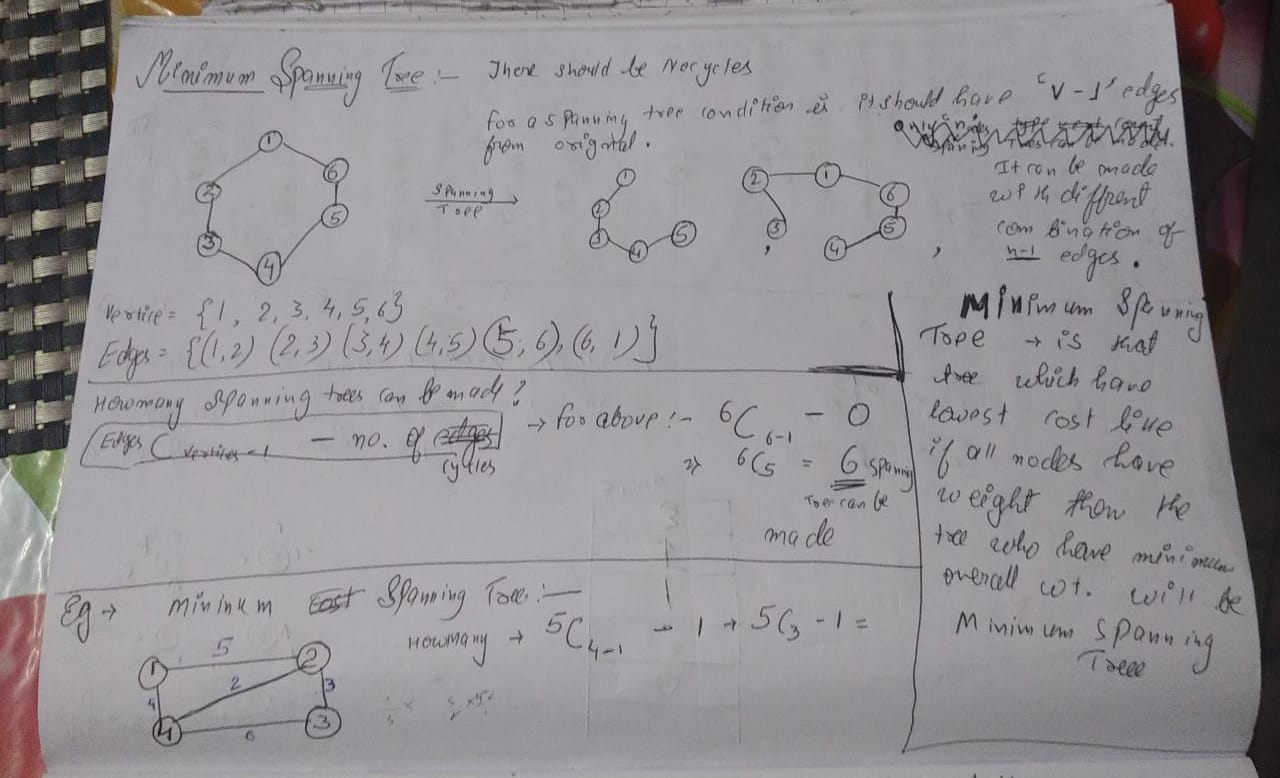 Minimum Spanning Tree :- There should be No cycles
for a spanning tree condition is it should have 'v-1' edges
from orignal.
It can be made
with diffrent
combination of
n-1 edges.
1
2
3
4
5
6
Spanning
Tree
1
2
3
4
5
,
2
1
6
3
5
4
,
Vertice = {1, 2, 3, 4, 5, 6}
Edges = {(1,2) (2,3) (3,4) (4,5) (5,6), (6,1)}
How many spanning trees can be made?
Edges C vertices-1 - no. of edges
cycles
→ for above :- 6C6-1 - 0
⇒ 6C5 = 6 spaning
Tree can be
made
Minimum Spanning
Tree → is that
tree which have
lowest cost like
if all nodes have
weight then the
tree who have minimum
overall wt. will be
Minimum Spanning
Treee
Eg → Mininum Cost Spanning Tree :-
How many → 5C4-1 - 1 → 5C3 - 1 =
1
5
2
4
2
3
4
6
3